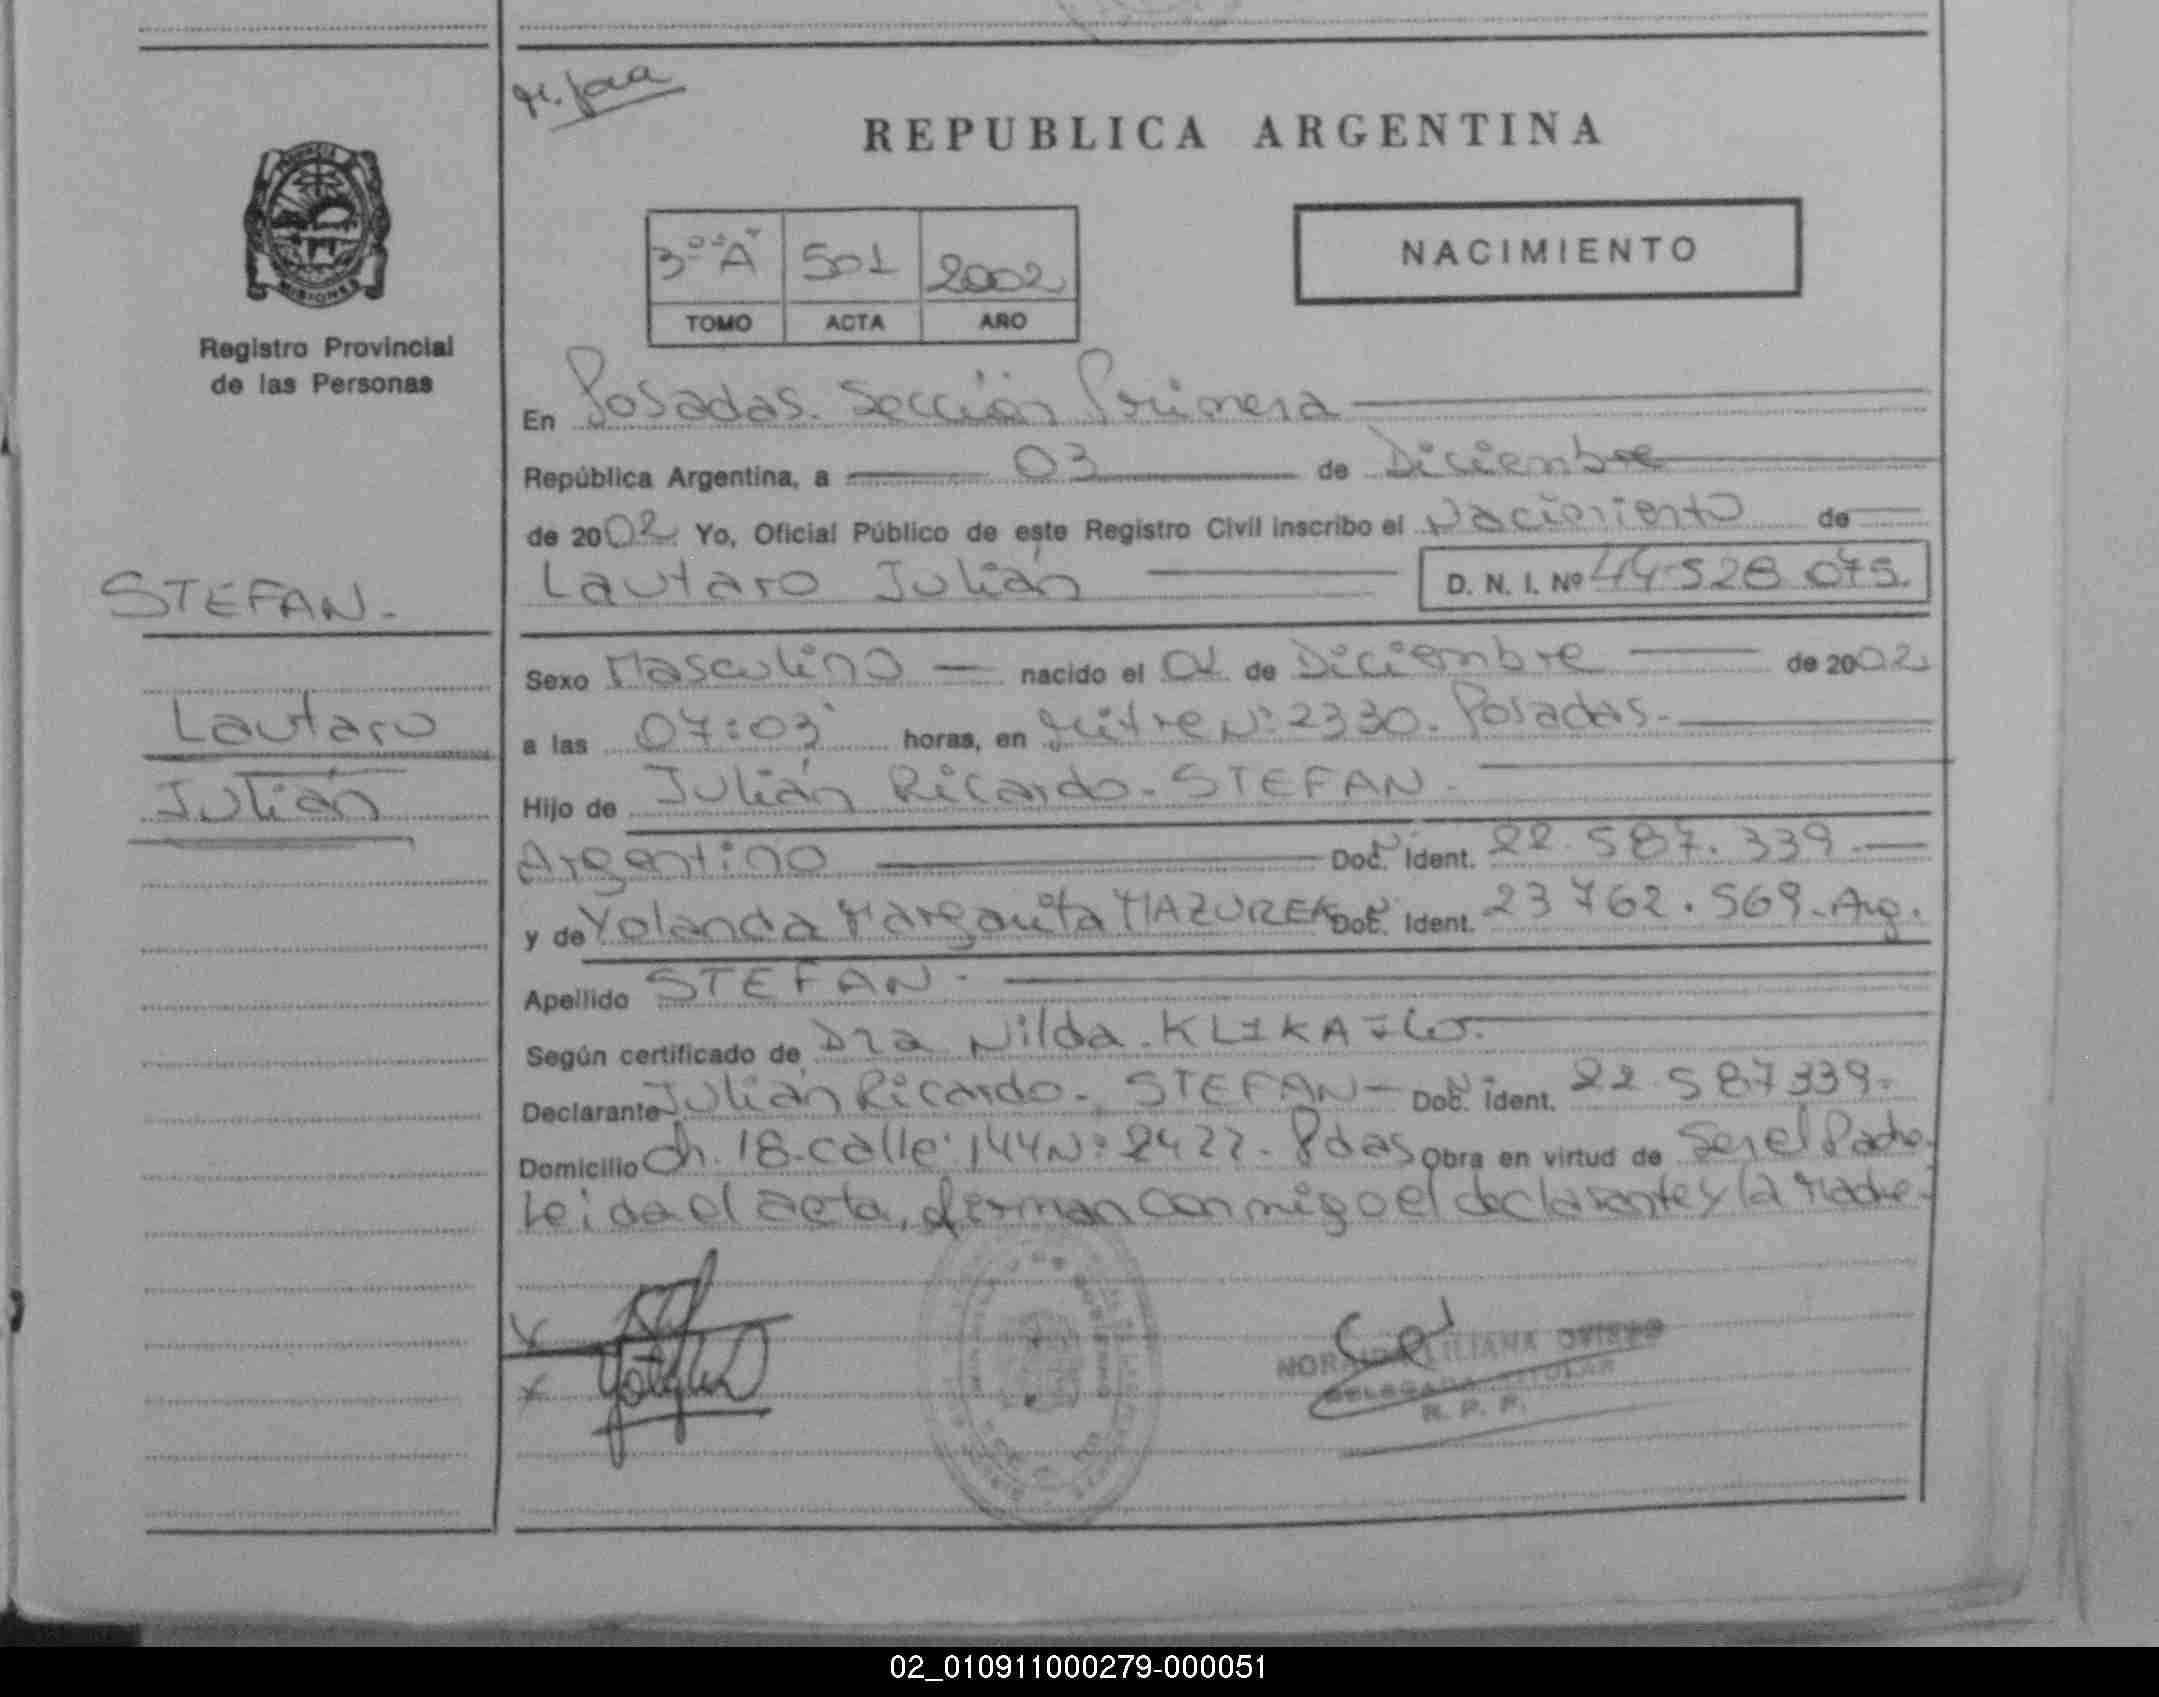 REPUBLICA ARGENTINA
3º "A" 501 2002
TOMO ACTA AÑO
NACIMIENTO
MISIONES
Registro Provincial
de las Personas
STEFAN.
Lautaro
Julián
En Posadas. Sección Primera
República Argentina, a 03 de Diciembre
de 2002 Yo, Oficial Público de este Registro Civil inscribo el Nacimiento de
Lautaro Julián D. N. I. Nº 44.528.075.
Sexo Masculino nacido el 01 de Diciembre de 2002
a las 07:03 horas, en Mitre Nº 2330. Posadas.
Hijo de Julián Ricardo. STEFAN.
Argentino Doc. Ident. 22.587.339.
y de Yolanda Margarita MAZUREK Doc. Ident. 23.762.569. Arg.
Apellido STEFAN.
Según certificado de Dra Nilda.
Declarante Julián Ricardo. STEFAN Doc. Ident. 22.587339.
Domicilio Ch. 18. calle 144 Nº 2422. Pdas Obra en virtud de Ser el Padre.
Leida el acta, firman conmigo el declarante y la Madre.
LILIANA
DELEGADA TITULAR
R. P. P.
02_010911000279-000051